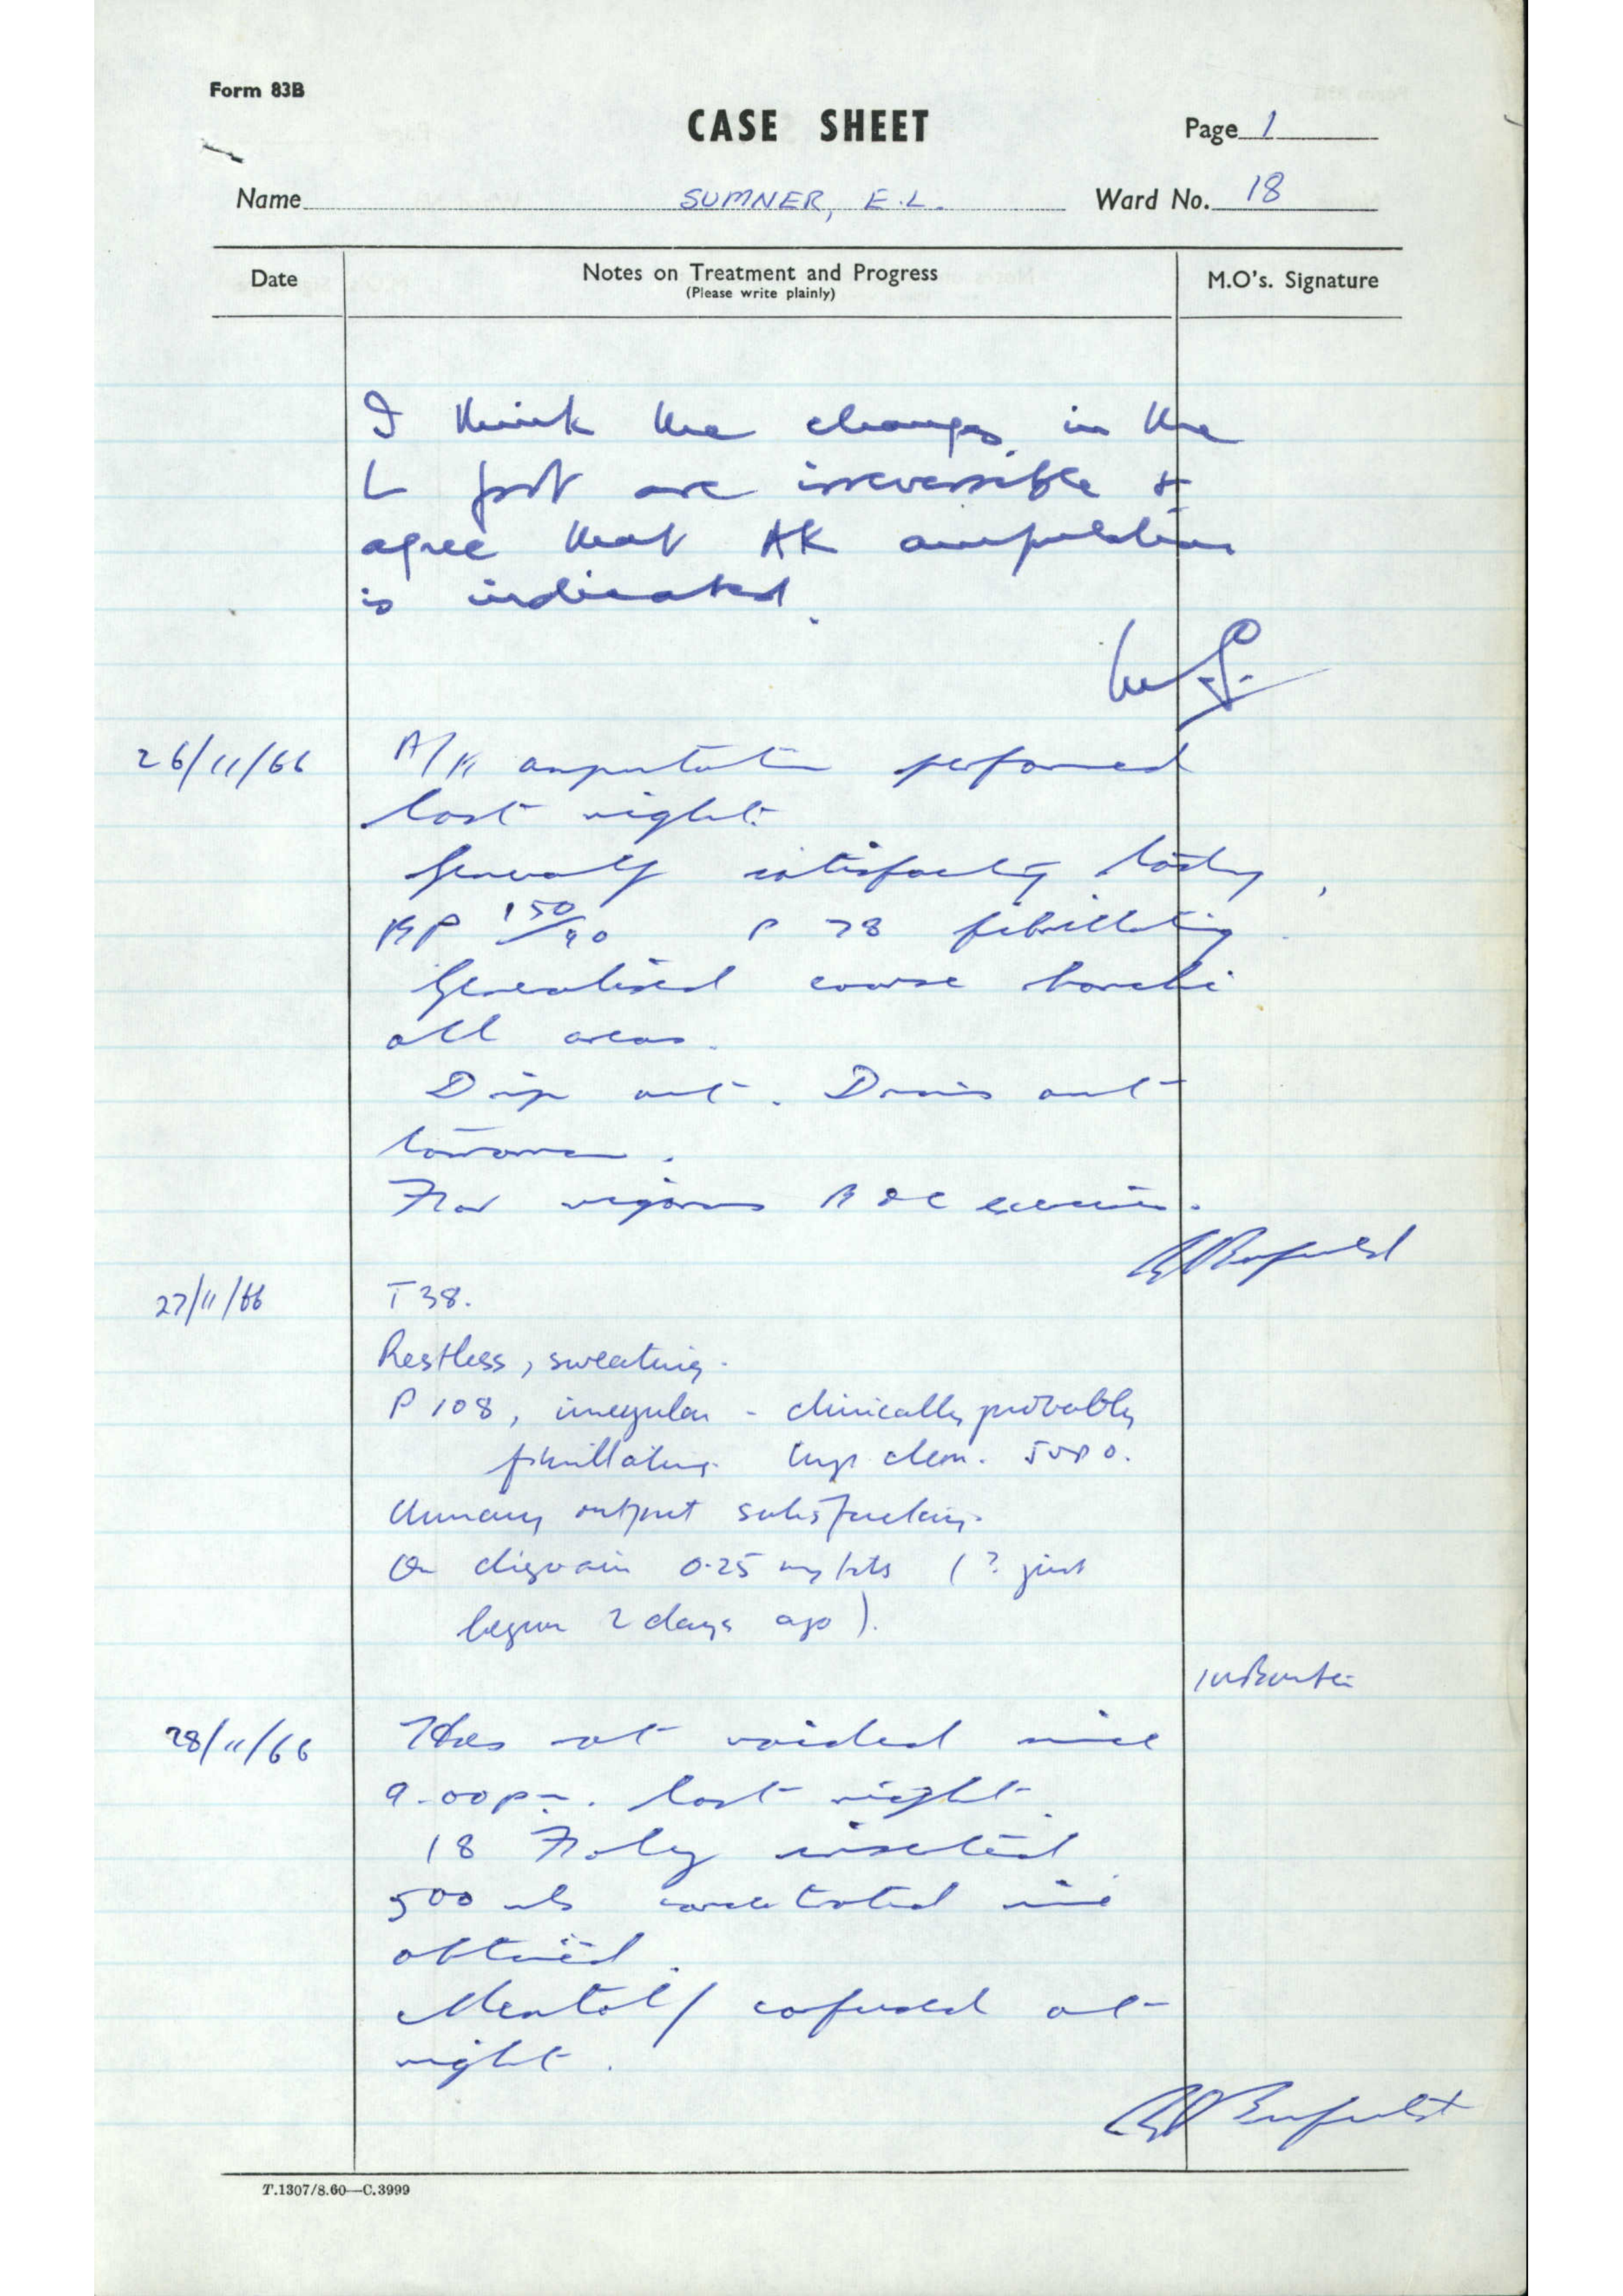 Form 83B
CASE SHEET
Page 1
Name SUMNER, E.L. Ward No. 18
Date Notes on Treatment and Progress M.O's. Signature
(Please write plainly)
I think the changes in the
L foot are irreversible &
agree that AK amputation
is indicated.
26/11/66 A/K amputation performed
last night.
Generally satisfactory today,
BP 150/90 P 78 fibrillating.
Generalised coarse rhonchi
all areas.
Drip out. Drain out
tomorrow.
For vigorous B & C exercises.
27/11/66 T 38.
Restless, sweating.
P 108, irregular - clinically probably
fibrillating. Lungs clear. JVP 0.
Urinary output satisfactory.
On digoxin 0.25 mg (? just
begun 2 days ago).
28/11/66 Has not voided since
9.00 pm. last night.
18 Foley inserted
500 mls concentrated urine
obtained.
Mentally confused at
night.
T.1307/8.60—C.3999